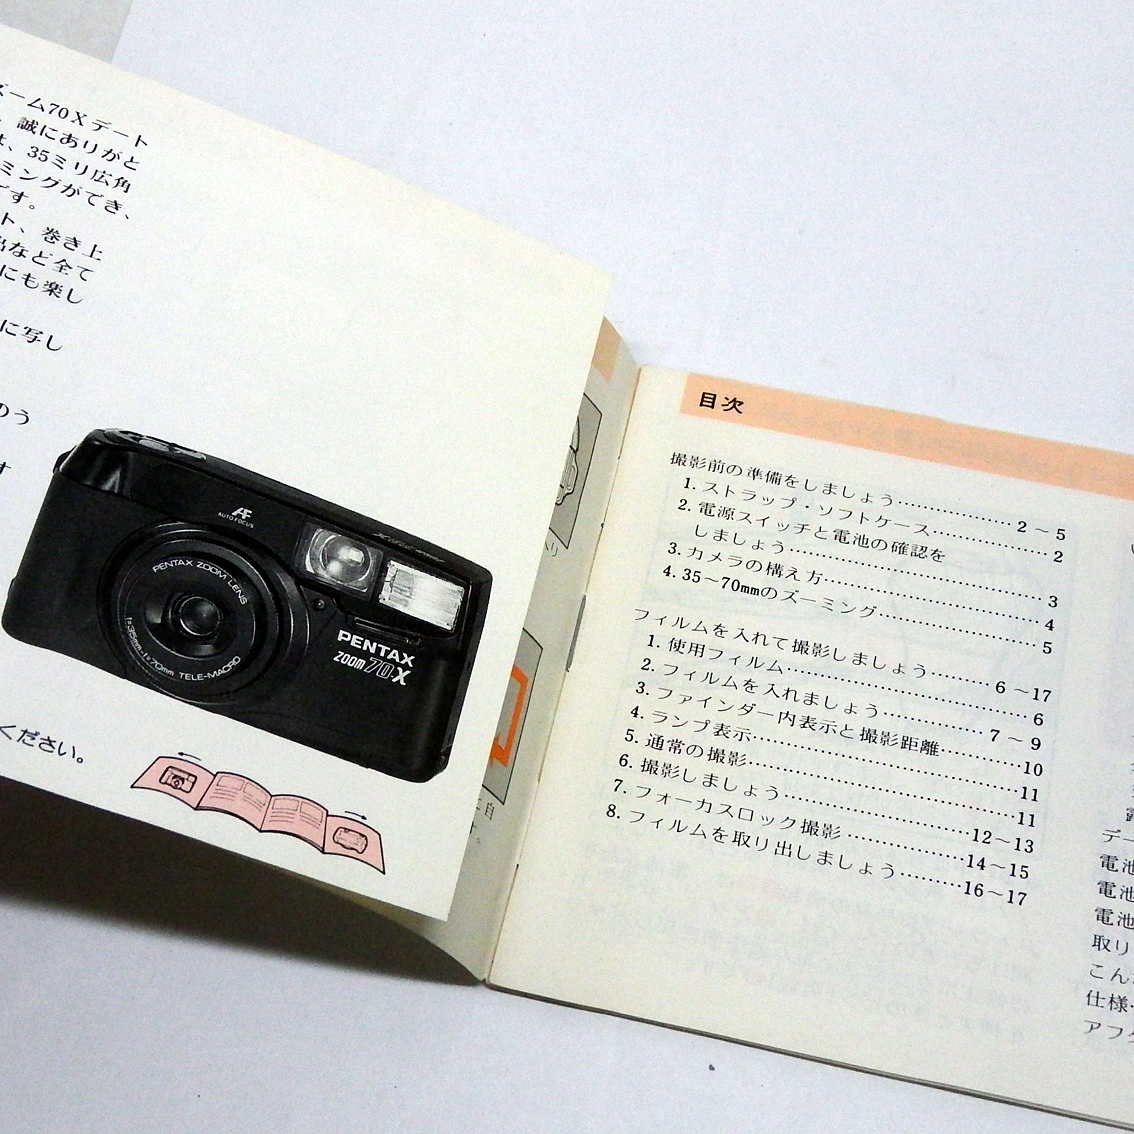 ズーム70Xデート
、誠にありがと
は、35ミリ広角
ミングができ、
です。
ト、巻き上
出など全て
にも楽し
に写し
のう
す
AF
AUTO FOCUS
PENTAX ZOOM LENS
f=35mm-f=70mm TELE-MACRO
PENTAX
ZOOM 70-X
ください。
目次
撮影前の準備をしましょう……………2～5
1. ストラップ・ソフトケース……………2
2. 電源スイッチと電池の確認を
しましょう……………3
3. カメラの構え方……………4
4. 35～70mmのズーミング……………5
フィルムを入れて撮影しましょう………6～17
1. 使用フィルム……………6
2. フィルムを入れましょう……………7～9
3. ファインダー内表示と撮影距離……………10
4. ランプ表示……………11
5. 通常の撮影……………11
6. 撮影しましょう……………12～13
7. フォーカスロック撮影……………14～15
8. フィルムを取り出しましょう………16～17
デー
電池
電池
電池
取り
こん
仕様
アフ